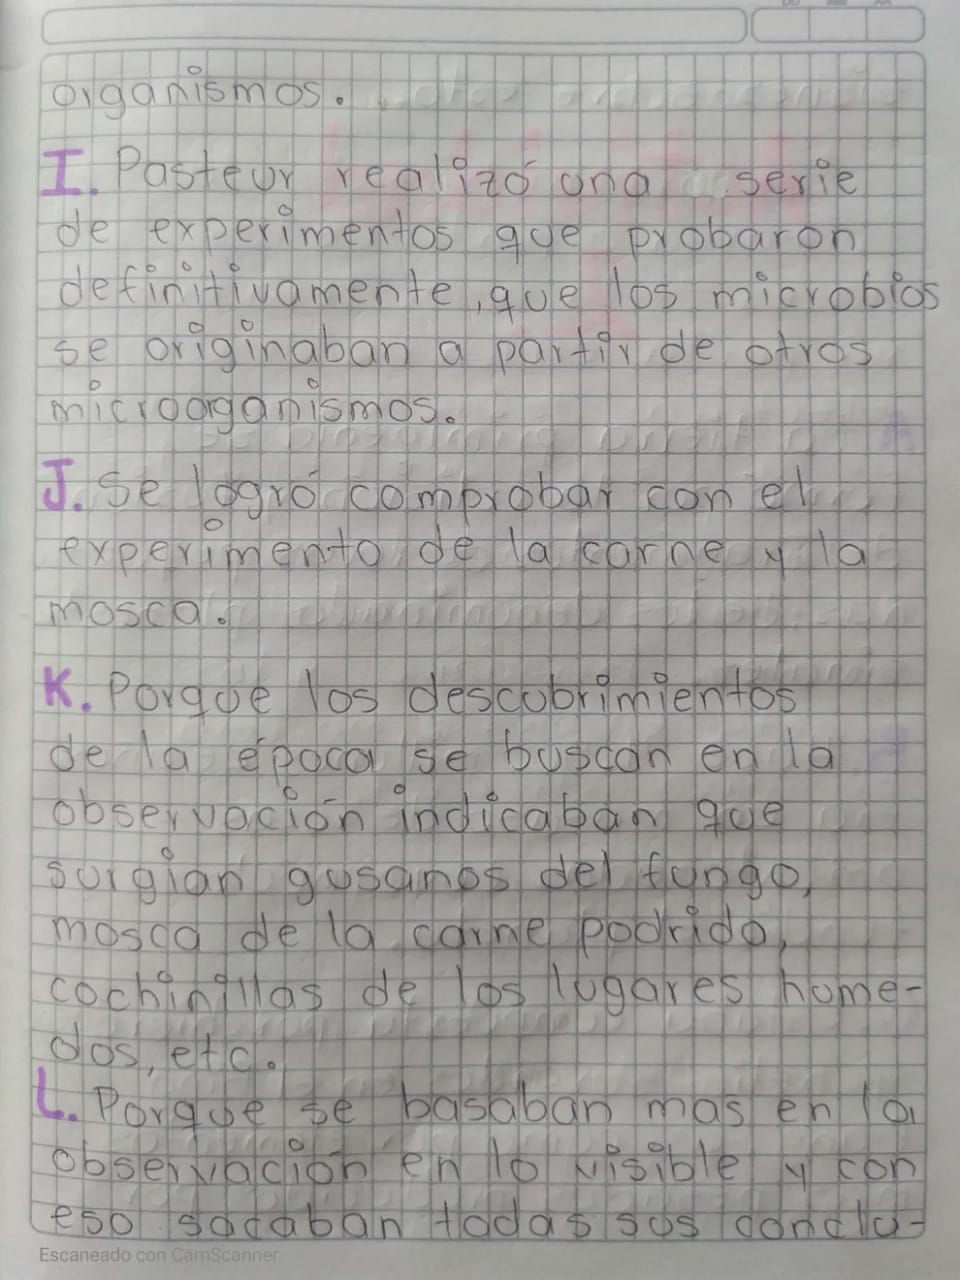 organismos.
I. Pasteur realizó una serie
de experimentos que probaron
definitivamente, que los microbios
se originaban a partir de otros
microorganismos.
J. Se logró comprobar con el
experimento de la carne y la
mosca.
K. Porque los descubrimientos
de la época se buscan en la
observación indicaban que
surgian gusanos del fungo,
mosca de la carne podrido,
cochinillas de los lugares hume-
dos, etc.
L. Porque se basaban mas en la
observación en lo visible y con
eso sacaban todas sus conclu-
Escaneado con CamScanner